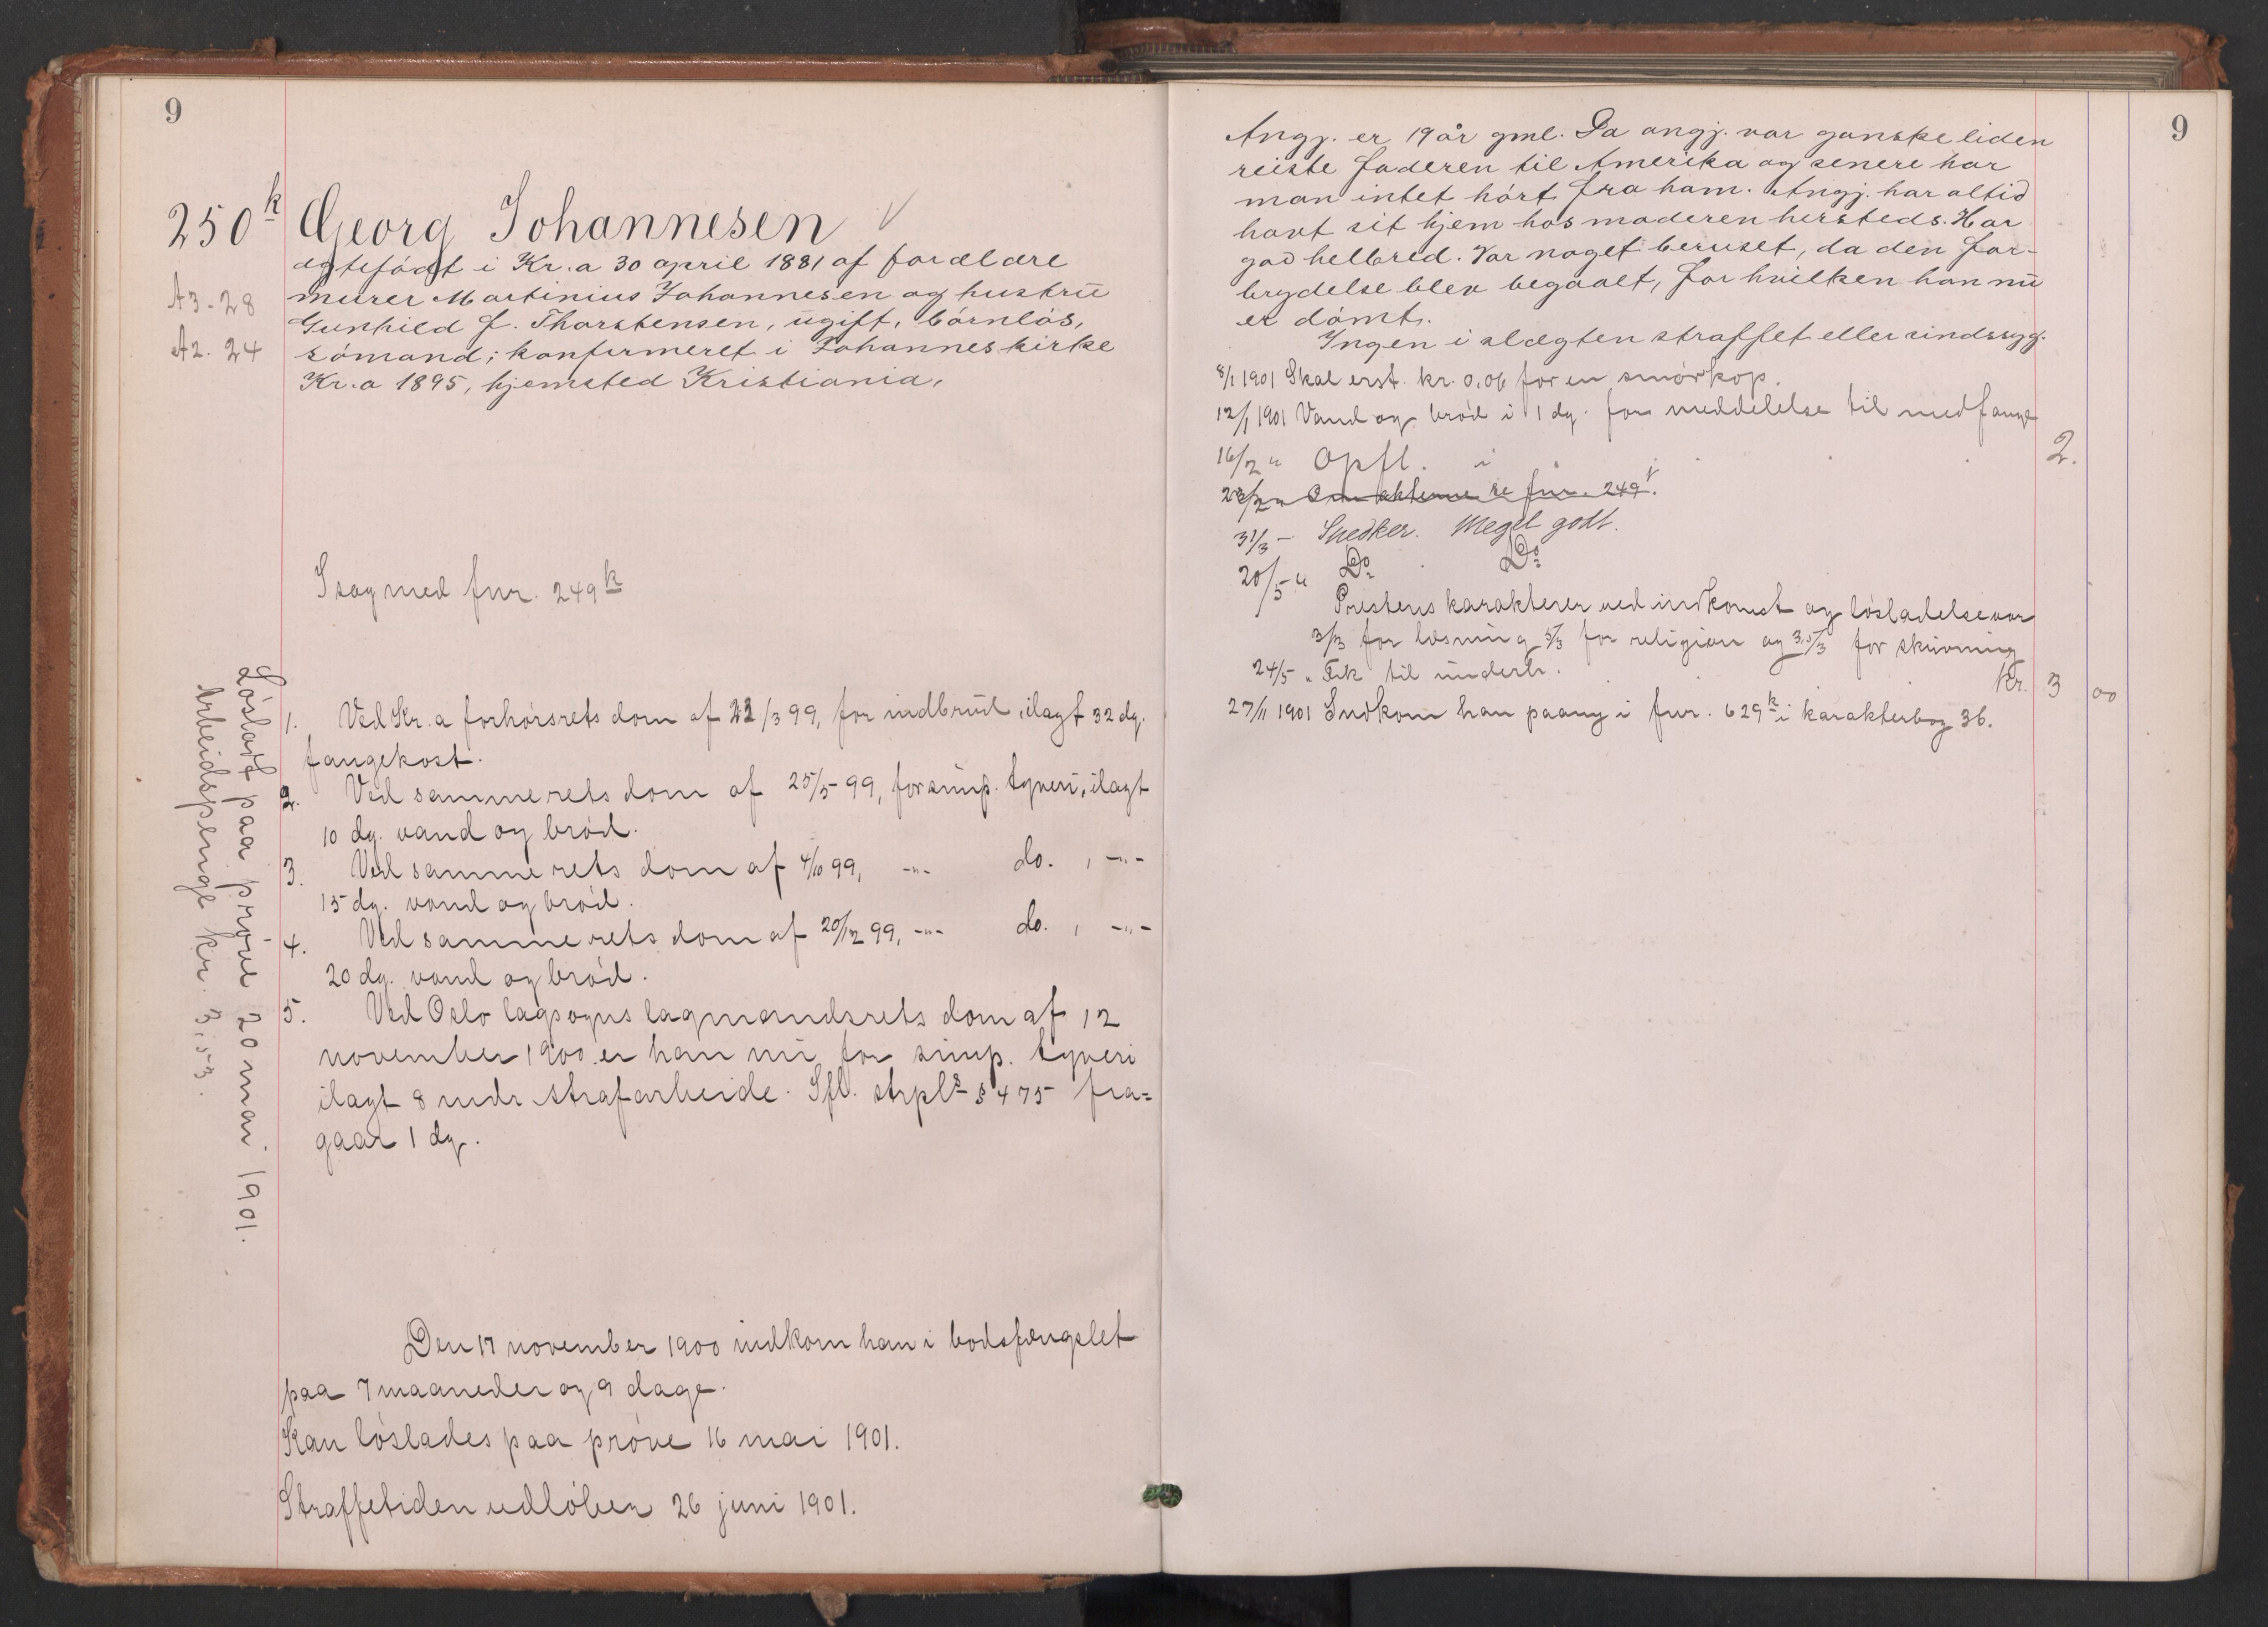 9
250k Georg Johannesen
ægtefødt i Kr.a 30 april 1881 af forældre
A3-28 murer Martinius Johannesen og hustru
Gunhild f. Thorstensen, ugift, børnløs,
A2. 24 sømand; konfirmeret i Johanneskirke
Kr.a 1895, hjemsted Kristiania,
I sag med fnr. 249k
1. Ved Kr.a forhørsrets dom af 22/3 99, for indbrud, ilagt 32 dg.
fangekost.
2. Ved sammerets dom af 25/5 99, for simp. tyveri, ilagt
10 dg. vand og brød.
3. Ved samme rets dom af 4/10 99, -"- do. , -"-
15 dg. vand og brød.
4. Ved samme rets dom af 20/12 99, -"- do. , -"-
20 dg. vand og brød.
5. Ved Oslo lagsogns lagmandsrets dom af 12
november 1900 er han nu for simp. tyveri
ilagt 8 mdr strafarbeide. Ifl. strpls § 475 fra=
gaar 1 dg.
Den 17 november 1900 indkom han i bodsfængslet
paa 7 maaneder og 9 dage.
Kan løslades paa prøve 16 mai 1901.
Straffetiden udløber 26 juni 1901.
Løsladt paa prøve 20 mai 1901.
Arbeidspenge kr. 3,53.
9
Angj. er 19 år gml. Da angj. var ganske liden
reiste faderen til Amerika og senere har
man intet hørt fra ham. Angj. har altid
havt sit hjem hos moderen hersteds. Har
god helbred. Var noget beruset, da den for-
brydelse blev begaaet, for hvilken han nu
er dømt.
Ingen i slægten straffet eller sindssyg.
8/1 1901 Skal erst. kr. 0,06 for en smørkop.
12/1 1901 Vand og brød i 1 dg. for meddelelse til medfange
16/2 " Opfl. i 2.
23/2 " Om akterne se fnr. 249k.
31/3 - Snedker. Meget godt.
20/5 " Do Do
Prestens karakterer ved indkomst og løsladelse var
3/3 for læsning 5/3 for religion og 3,5/3 for skrivning
24/5 " Fik til underb. Kr. 3 00
27/11 1901 Indkom han paany i fnr. 629k i karakterbog 36.